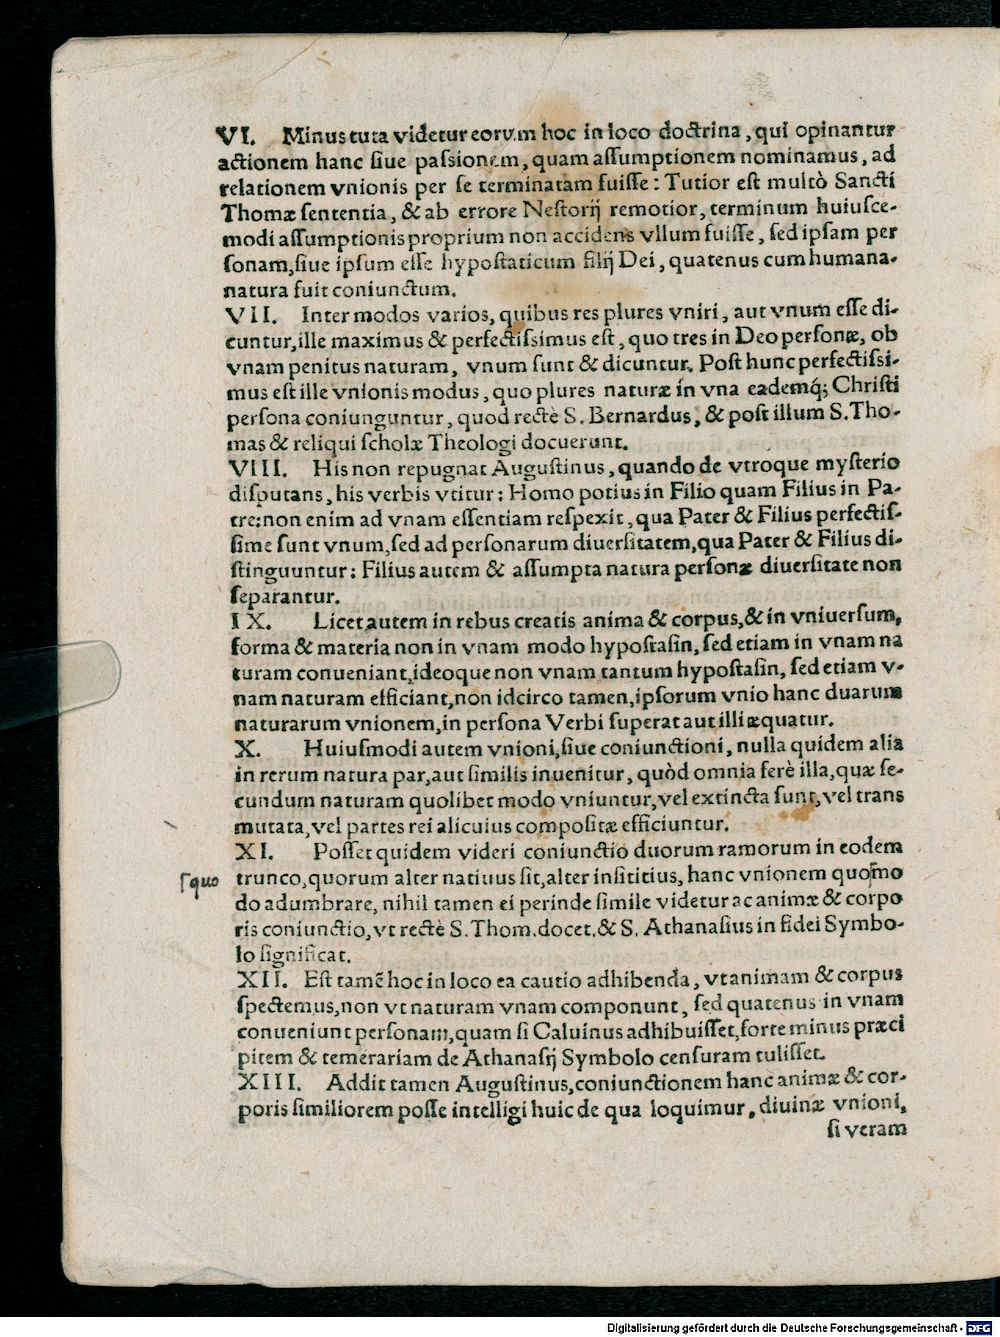 VI. Minus tuta videtur eorum hoc in loco doctrina, qui opinantur
actionem hanc siue passionem, quam assumptionem nominamus, ad
relationem vnionis per se terminatam fuisse: Tutior est multò Sancti
Thomæ sententia, & ab errore Nestorij remotior, terminum huiusce-
modi assumptionis proprium non accidens vllum fuisse, sed ipsam per
sonam, siue ipsum esse hypostaticum filij Dei, quatenus cum humana-
natura fuit coniunctum.
VII. Inter modos varios, quibus res plures vniri, aut vnum esse di-
cuntur, ille maximus & perfectissimus est, quo tres in Deo personæ, ob
vnam penitus naturam, vnum sunt & dicuntur. Post hunc perfectissi-
mus est ille vnionis modus, quo plures naturæ in vna eademq́; Christi
persona coniunguntur, quod rectè S. Bernardus, & post illum S. Tho-
mas & reliqui scholæ Theologi docuerunt.
VIII. His non repugnat Augustinus, quando de vtroque mysterio
disputans, his verbis vtitur: Homo potius in Filio quam Filius in Pa-
tre: non enim ad vnam essentiam respexit, qua Pater & Filius perfectis-
sime sunt vnum, sed ad personarum diuersitatem, qua Pater & Filius di-
stinguuntur: Filius autem & assumpta natura personæ diuersitate non
separantur.
IX. Licet autem in rebus creatis anima & corpus, & in vniuersum,
forma & materia non in vnam modo hypostasin, sed etiam in vnam na
turam conueniant, ideoque non vnam tantum hypostasin, sed etiam v-
nam naturam efficiant, non idcirco tamen, ipsorum vnio hanc duarum
naturarum vnionem, in persona Verbi superat aut illi æquatur.
X. Huiusmodi autem vnioni, siue coniunctioni, nulla quidem alia
in rerum natura par, aut similis inuenitur, quòd omnia ferè illa, quæ se-
cundum naturam quolibet modo vniuntur, vel extincta sunt, vel trans
mutata, vel partes rei alicuius compositæ efficiuntur.
XI. Posset quidem videri coniunctio duorum ramorum in eodem
trunco, quorum alter natiuus sit, alter insititius, hanc vnionem quo⌈mo
⌈quo
do adumbrare, nihil tamen ei perinde simile videtur ac animæ & corpo
ris coniunctio, vt rectè S. Thom. docet. & S. Athanasius in fidei Symbo-
lo significat.
XII. Est tamẽ hoc in loco ea cautio adhibenda, vt animam & corpus
spectemus, non vt naturam vnam componunt, sed quatenus in vnam
conueniunt personam, quam si Caluinus adhibuisset, forte minus præci
pitem & temerariam de Athanasij Symbolo censuram tulisset.
XIII. Addit tamen Augustinus, coniunctionem hanc animæ & cor-
poris similiorem posse intelligi huic de qua loquimur, diuinæ vnioni,
si veram
Digitalisierung gefördert durch die Deutsche Forschungsgemeinschaft - DFG